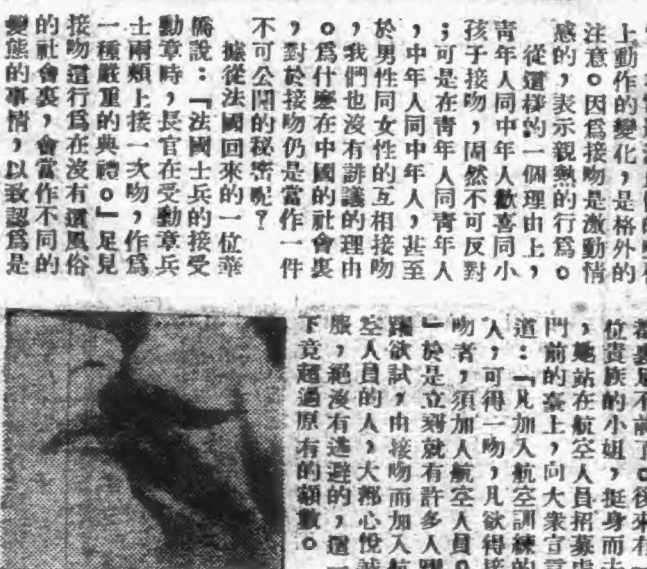 上動作的變化，是格外的
注意。因爲接吻是激動情
感的，表示親熱的行爲。
從這樣的一個理由上，
青年人同中年人歡喜同小
孩子接吻，固然不可反對
；可是在青年人同青年人
，中年人同中年人，甚至
於男性同女性的互相接吻
，我們也沒有誹議的理由
。爲什麼在中國的社會裏
，對於接吻仍是當作一件
不可公開的秘密呢？
據從法國回來的一位華
僑說：「法國士兵的接受
勳章時，長官在受勳章兵
士兩頰上接一次吻，作爲
一種嚴重的典禮。」足見
接吻這行爲在沒有這風俗
的社會裏，會當作不同的
變態的事情，以致認爲是
後來有一
位貴族的小姐，挺身而去
，她站在航空人員招募處
門前的臺上，向大衆宣言
道：「凡加入航空訓練的
人，可得一吻，凡欲得接
吻者，須加入航空人員。
」於是立刻就有許多人躍
躍欲試，由接吻而加入航
空人員的人，大都心悅誠
服，絕沒有逃避的，這一
下竟超過原有的額數。